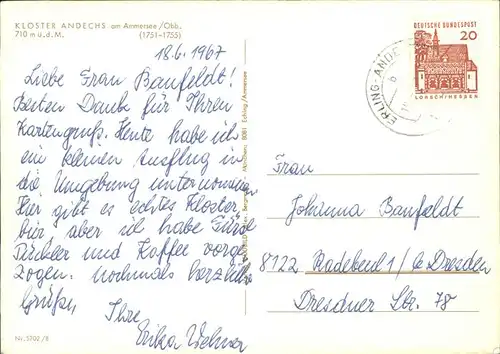 KLOSTER ANDECHS am Ammersee/Obb.
710 m ü.d.M. (1751–1755)
18.6.1967
Liebe Frau Baufeldt!
Besten Dank für Ihren
Kartengruß. Heute habe ich
ein kleinen Ausflug in
die Umgebung unternommen
Hier gibt es echtes Kloster
bier aber ich habe
und Kaffee vorge
zogen. nochmals herzliche
Grüße
Ihre
Erika
Nr. 5702/8
8081 Eching/Ammersee
DEUTSCHE BUNDESPOST
20
LORSCH/HESSEN
ERLING-ANDE
Frau
Johanna Baufeldt
8122 Radebeul 1 / b Dresden
Dresdner Str. 78